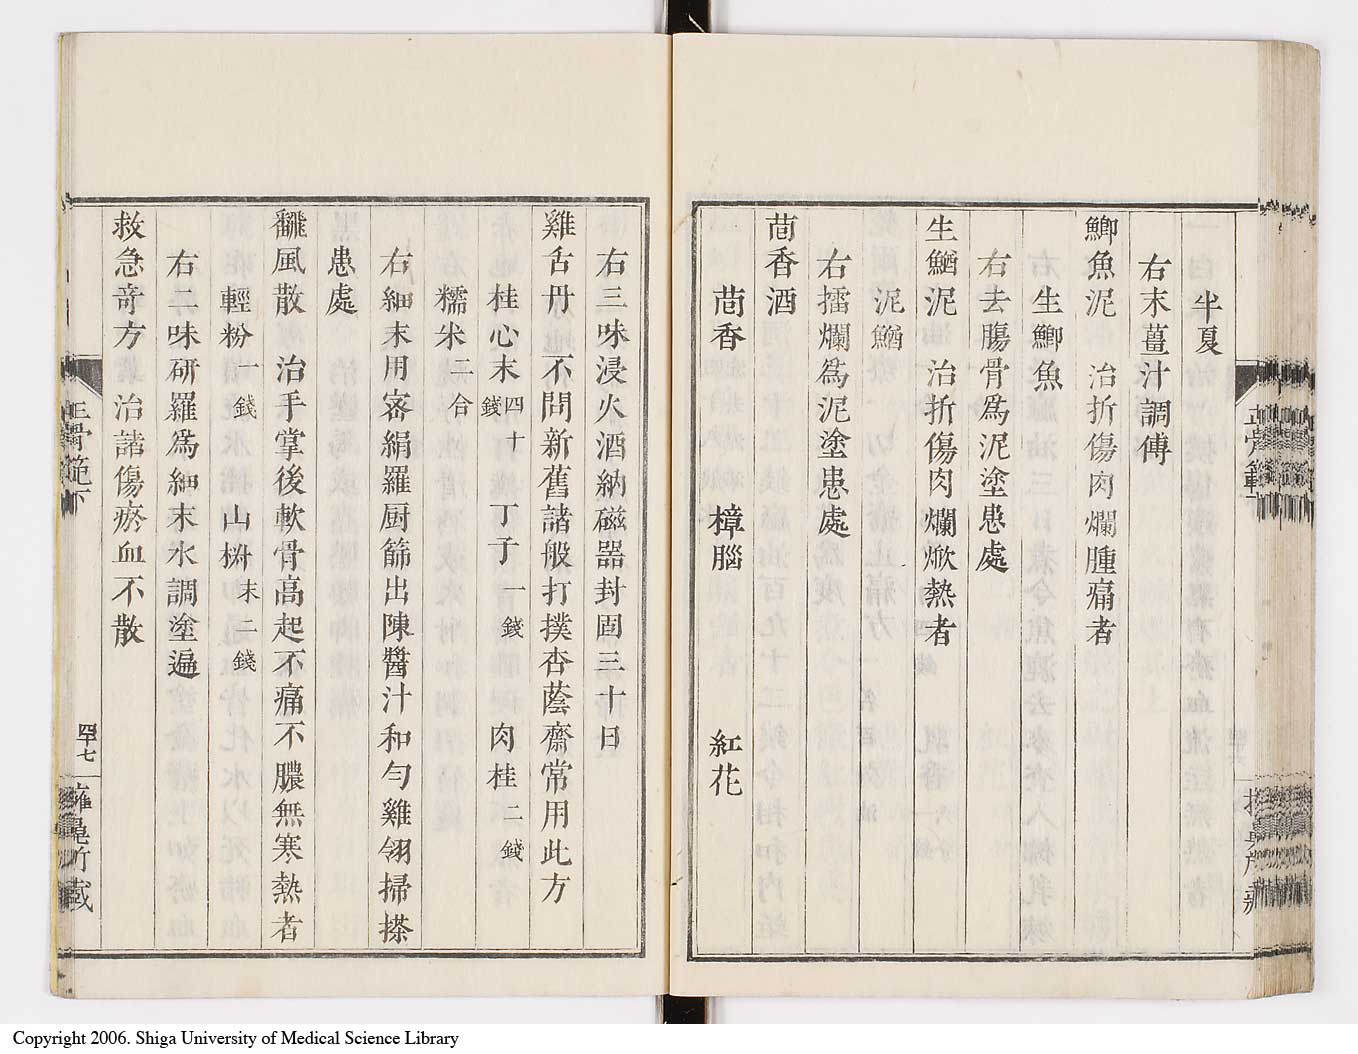 半夏
右末薑汁調傅
鯽魚泥 治折傷肉爛腫痛者
生鯽魚
右去腸骨為泥塗患處
生鰌泥 治折傷肉爛焮熱者
泥鰌
右擂爛為泥塗患處
茴香酒
茴香 樟腦 紅花
右三味浸火酒納磁器封固三十日
雞舌丹 不問新舊諸般打撲杏蔭齋常用此方
桂心末四十錢 丁子一錢 肉桂二錢
糯米二合
右細末用密絹羅厨篩出陳醬汁和勻雞翎掃搽
患處
飜風散 治手掌後軟骨高起不痛不膿無寒熱者
輕粉一錢 山梔末二錢
右二味研羅為細末水調塗遍
救急奇方 治諸傷瘀血不散
正骨範下
四十七
Copyright 2006. Shiga University of Medical Science Library